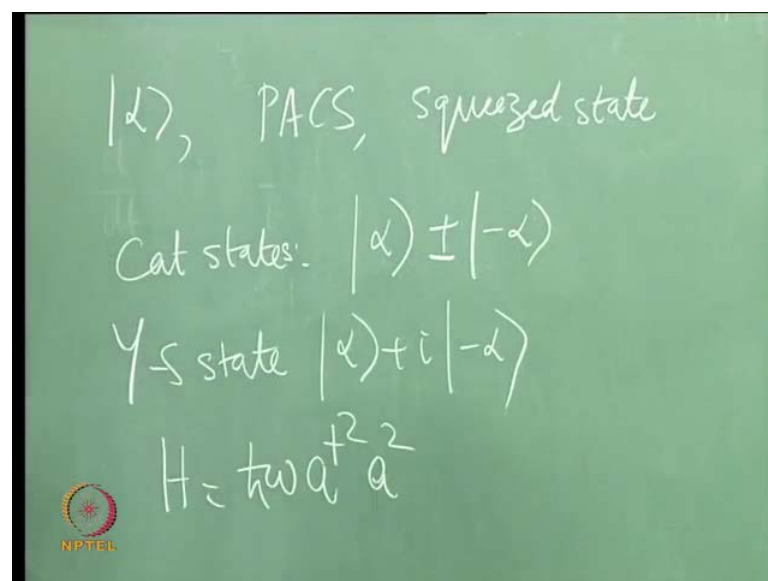 |α⟩, PACS, Squeezed state
Cat states: |α⟩ ± |-α⟩
Y-S state |α⟩ + i |-α⟩
H = ħω a†² a²
NPTEL